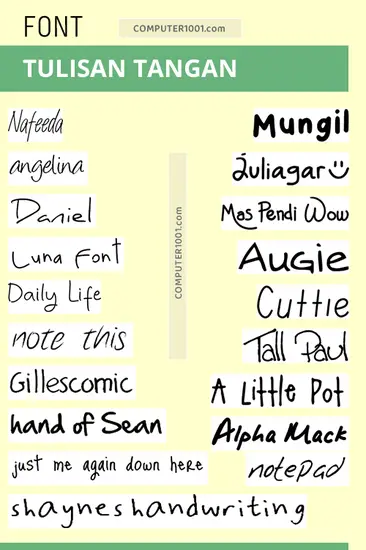 FONT
COMPUTER1001.com
TULISAN TANGAN
Nafeeda
angelina
Daniel
Luna Font
Daily Life
note this
Gillescomic
hand of Sean
just me again down here
shayneshandwriting
COMPUTER1001.com
Mungil
Juliagar
Mas Pendi Wow
Augie
Cuttie
Tall Paul
A Little Pot
Alpha Mack
notepad